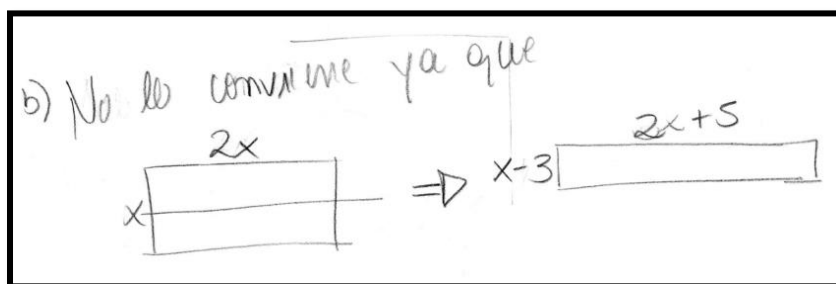 b) No le conviene ya que
2x
x
⇒
x-3
2x+5